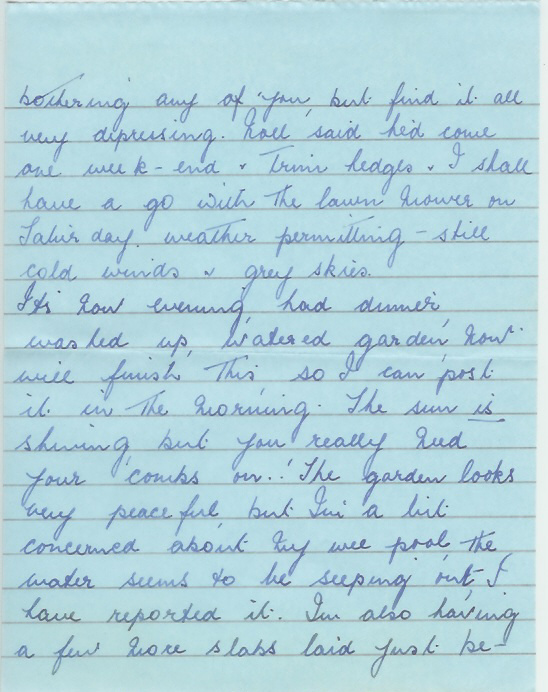 bothering any of you, but find it all
very depressing. Noel said he'd come
one week-end & trim hedges & I shall
have a go with the lawn mower on
Saturday. weather permitting - still
cold winds & grey skies.
It's now evening, had dinner
washed up, watered garden, now
will finish this so I can post
it in the morning. The sun is
shining but you really need
your 'combs on'.! The garden looks
very peaceful but I'm a bit
concerned about my wee pool, the
water seems to be seeping out I
have reported it. I'm also having
a few more slabs laid just be-